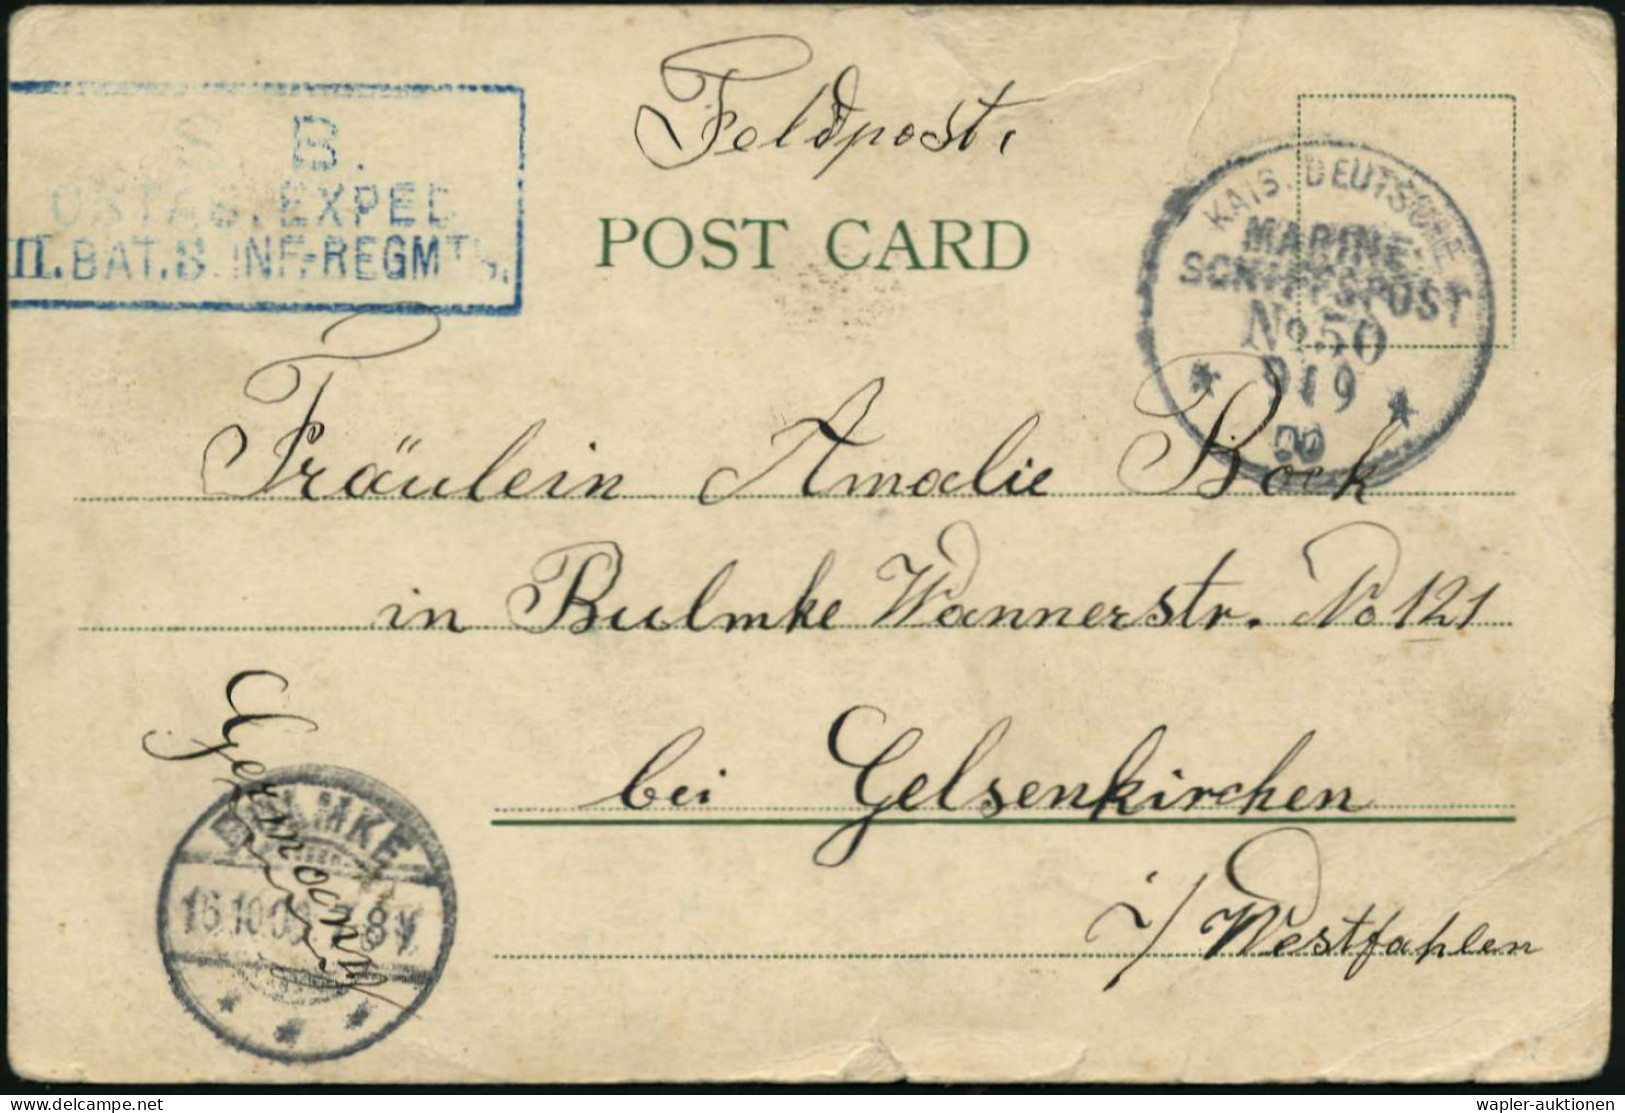 Feldpost.
S. B.
OSTAS. EXPED
II. BAT. 3. INF.-REGMTS.
POST CARD
KAIS. DEUTSCHE
MARINE-
SCHIFFSPOST
No 50
9/9
00
Fräulein Amalie Bock
in Bulmke Wannerstr. No 121
bei Gelsenkirchen
i/Westfahlen
Germany
BULMKE
16.10.00 7-8V
www.delcampe.net
wapler-auktionen